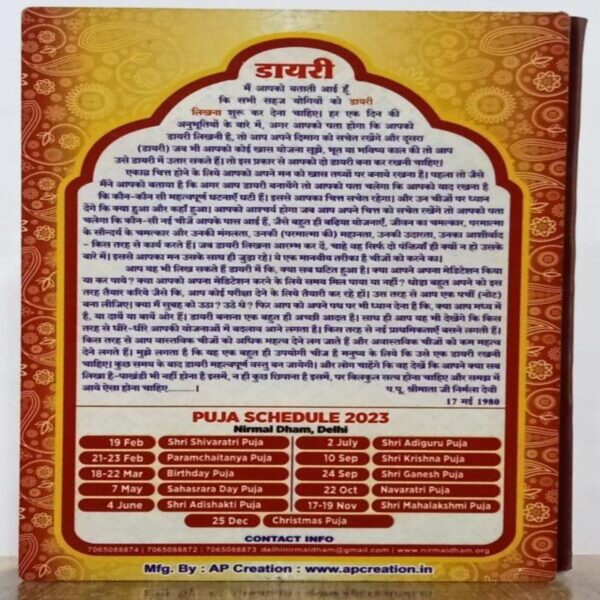 डायरी
मैं आपको बताती आई हूँ
कि सभी सहज योगियों को डायरी
लिखना शुरू कर देना चाहिए। हर एक दिन की
अनुभूतियों के बारे में, अगर आपको पता होगा कि आपको
डायरी लिखनी है, तो आप अपने दिमाग को सचेत रखेंगे और दूसरा
(डायरी) जब भी आपको कोई खास योजना सूझे, भूत या भविष्य काल की तो आप
उसे डायरी में उतार सकते हैं। तो इस प्रकार से आपको दो डायरी बना कर रखनी चाहिए।
एकाग्र चित्त होने के लिये आपको अपने मन को खास तथ्यों पर बनाये रखना है। पहला तो जैसे
मैंने आपको बताया है कि अगर आप डायरी बनायेंगे तो आपको पता चलेगा कि आपको याद रखना है
कि कौन-कौन सी महत्वपूर्ण घटनाएँ घटी हैं। इससे आपका चित्त सचेत रहेगा। और उन चीजों पर ध्यान
देंगे कि क्या हुआ और कहाँ हुआ। आपको आश्चर्य होगा जब आप अपने चित्त को सचेत रखेंगे तो आपको पता
चलेगा कि कौन-सी नई चीजें आपके पास आई हैं, जैसे बहुत ही बढ़िया योजनाएँ, जीवन का चमत्कार, परमात्मा
के सौन्दर्य के चमत्कार और उनकी मंगलता, उनकी (परमात्मा की) महानता, उनकी उदारता, उनका आशीर्वाद
- किस तरह से कार्य करते हैं। जब डायरी लिखना आरम्भ कर दें, चाहे वह सिर्फ दो पंक्तियाँ ही क्यों न हो उसके
बारे में। इससे आपका मन उसके साथ ही जुड़ा रहे। ये एक मानवीय तरीका है चीजों को करने का।
आप यह भी लिख सकते हैं डायरी में कि, क्या सब घटित हुआ है। क्या आपने अपना मेडिटेशन किया
या कर पाये? क्या आपको अपना मेडिटेशन करने के लिये समय मिल पाया या नहीं? थोड़ा बहुत अपने को इस
तरह तैयार करिये जैसे कि, आप कोई परीक्षा देने के लिये तैयारी कर रहे हों। उस तरह से आप एक पर्ची (नोट)
बना लीजिए। क्या मैं सुबह को उठा? उठे थे? फिर आप को अपने पथ पर भी ध्यान देना है कि, क्या आप मध्य में
है, या दायें या बायें ओर हैं। डायरी बनाना एक बहुत ही अच्छी आदत है। साथ ही आप यह भी देखेंगे कि किस
तरह से धीरे-धीरे आपकी योजनाओं में बदलाव आने लगता है। किस तरह से नई प्राथमिकताएँ बसने लगती हैं।
किस तरह से आप वास्तविक चीजों को अधिक महत्व देने लग जाते हैं और अवास्तविक चीजों को कम महत्व
देने लगते हैं। मुझे लगता है कि यह एक बहुत ही उपयोगी चीज है मनुष्य के लिये कि उसे एक डायरी रखनी
चाहिए। कुछ समय के बाद डायरी महत्वपूर्ण वस्तु बन जायेगी। और लोग चाहेंगे कि वह देखें कि आपने क्या सब
लिखा है-पाखंडी भी नहीं होना है इसमें, न ही कुछ छिपाना है इसमें, पर बिलकुल सत्य होना चाहिए और समझ में
आये ऐसा होना चाहिए..........। प.पू. श्रीमाता जी निर्मला देवी
17 मई 1980
PUJA SCHEDULE 2023
Nirmal Dham, Delhi
19 Feb Shri Shivaratri Puja 2 July Shri Adiguru Puja
21-23 Feb Paramchaitanya Puja 10 Sep Shri Krishna Puja
18-22 Mar Birthday Puja 24 Sep Shri Ganesh Puja
7 May Sahasrara Day Puja 22 Oct Navaratri Puja
4 June Shri Adishakti Puja 17-19 Nov Shri Mahalakshmi Puja
25 Dec Christmas Puja
CONTACT INFO
7065088874 | 7065088872 | 7065088873 delhinirmaldham@gmail.com | www.nirmaldham.org
Mfg. By : AP Creation : www.apcreation.in